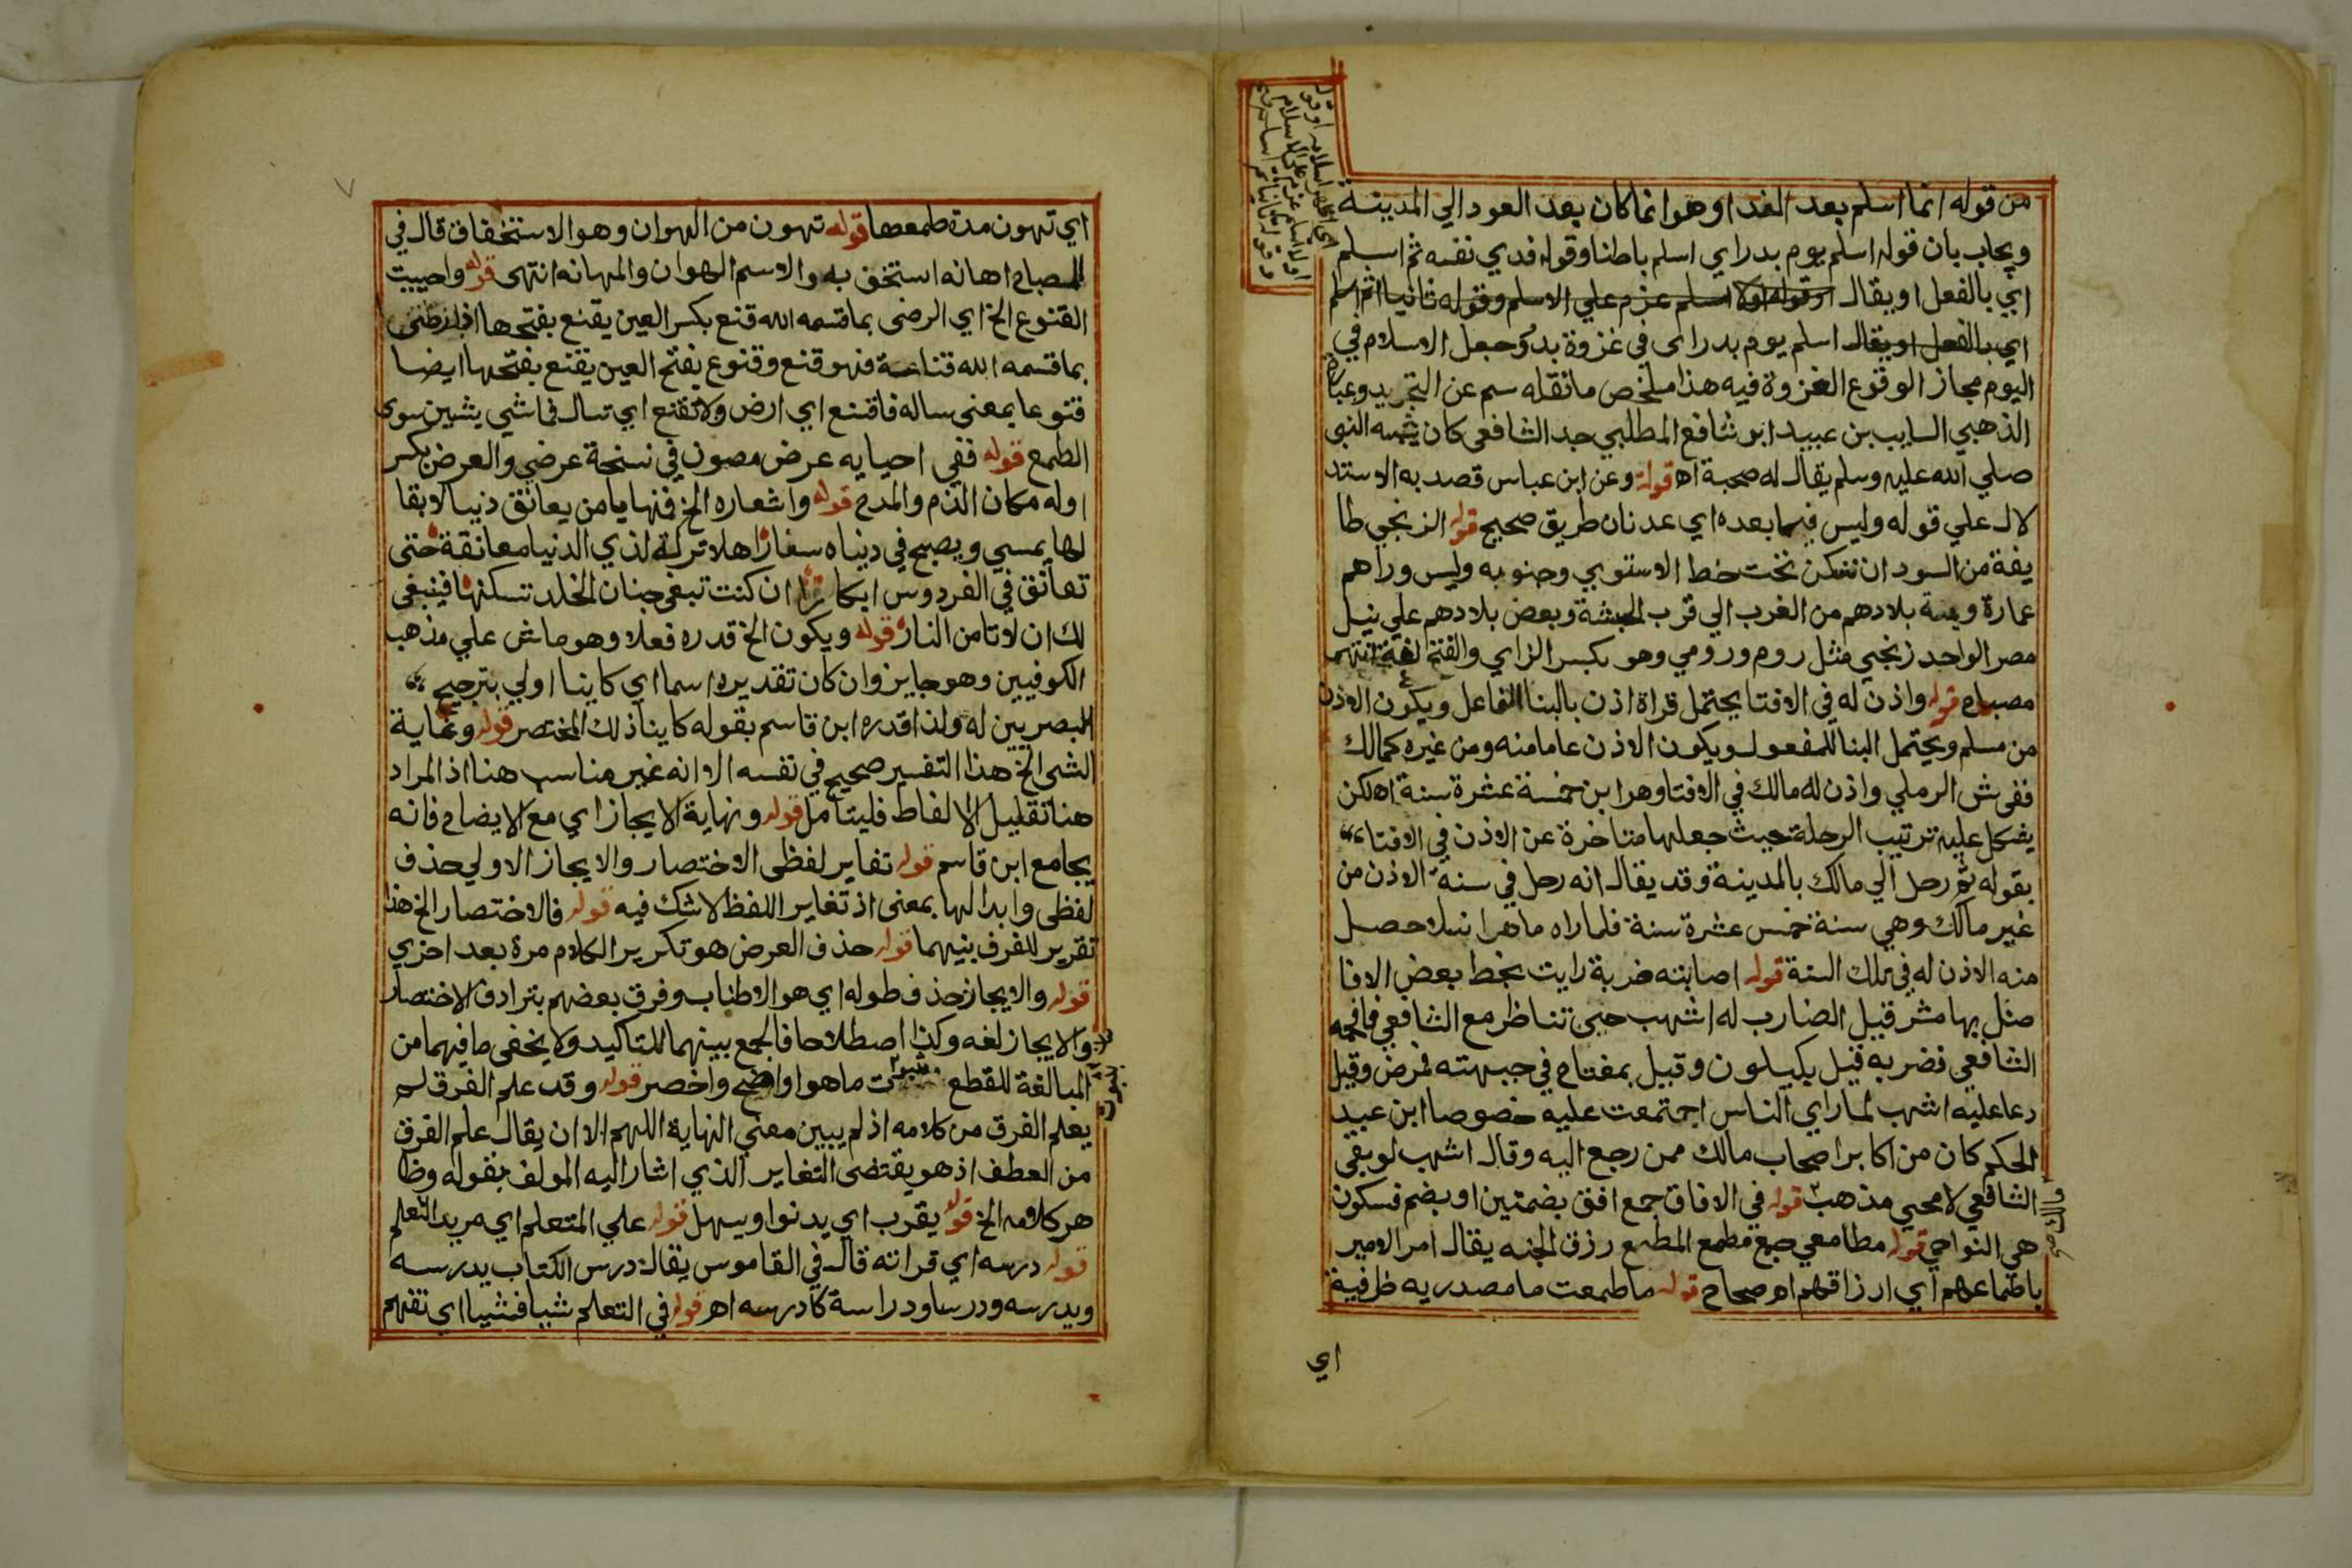 من قوله انما اسلم بعد الفداوهو انما كان بعد العود الي المدينة
ويجاب بان قوله اسلم يوم بدر اي اسلم باطنا وقوله فدي نفسه ثم اسلم
اي بالفعل او يقال او قوله اولا اسلم عزم علي الاسلام وقوله ثانيا ثم اسلم
اي بالفعل او يقال اسلم يوم بدر اى في غزوة بدر وجعل الاسلام في
اليوم مجاز الوقوع الغزوة فيه هذا ملخص ما نقله سم عن التجريد وعبارة
الذهبي السايب بن عبيد ابو شافع المطلبي جد الشافعى كان يشبه النبى
صلي الله عليه وسلم يقال له صحبة اه قوله وعن ابن عباس قصد به الاستد
لال علي قوله وليس فيما بعده اي عدنان طريق صحيح قوله الزنجي طا
يفة من السودان تسكن تحت خط الاستوي وجنوبه وليس وراهم
عمارة وبلادهم من الغرب الي قرب الحبشة وبعض بلادهم علي نيل
مصر الواحد زنجي مثل روم ورومي وهو بكسر الزاي والفتح لغة انتهى
مصباح قوله واذن له في الافتا يحتمل قراة اذن بالبنا للفاعل ويكون الاذن
من مسلم ويحتمل البنا للمفعول ويكون الاذن عاما منه ومن غيره كمالك
ففى ش الرملي واذن له مالك في الافتا وهو ابن خمسة عشرة سنة اه لكن
يشكل عليه ترتيب الرحلة حيث جعلها متاخرة عن الاذن في الافتاء
بقوله ثم رحل الي مالك بالمدينة وقد يقال انه رحل في سنة الاذن من
غير مالك وهي سنة خمس عشرة سنة فلما راه ماهرا نبيلا حصل
منه الاذن له في تلك السنة قوله اصابته ضربة رايت بخط بعض الافا
ضل بهامش قيل الضارب له اشهب حين تناظر مع الشافعي فافحمه
الشافعى فضربه قيل بكيلون وقيل بمفتاح في جبهته فمرض وقيل
دعا عليه اشهب لما راي الناس اجتمعت عليه خصوصا ابن عبد
الحكم كان من اكابر اصحاب مالك ممن رجع اليه وقال اشهب لو بقي
الشافعي لامحي مذهب قوله في الافاق جمع افق بضمتين او بضم فسكون
هى النواحي قوله مطامعي جمع مطمع المطمع رزق الجند يقال امر الامير
باطماعهم اي ارزاقهم اه صحاح قوله ما طمعت ما مصدرية ظرفية
اي
اي تهون مدة طمعها قوله تهون من الهوان وهو الاستخفاف قال في
المصباح اهانه استخف به والاسم الهوان والمهانه انتهى قوله واحييت
القنوع الخ اي الرضى بما قسمه الله قنع بكسر العين يقنع بفتحها اذا رضى
بما قسمه الله قناعة فهو قنع وقنوع بفتح العين يقنع بفتحها ايضا
قنوعا بمعنى ساله فاقنع اي ارض ولا تقنع اي تسال فما شي يشين سوى
الطمع قوله ففي احيايه عرض مصون في نسخة عرضي والعرض بكسر
اوله مكان الذم والمدح قوله واشعاره الخ فمنها يا من يعانق دنيا لا بقا
لها يمسي ويصبح في دنياه سفارا هلا تركت لذي الدنيا معانقة حتى
تعانق في الفردوس ابكارا ان كنت تبغى جنان الخلد تسكنها فينبغى
لك ان لا تامن النار قوله ويكون الخ قدره فعلا وهو ماش علي مذهب
الكوفيين وهو جايز وان كان تقديره اسما اي كاينا اولي بترجيح
البصريين له ولذا قدره ابن قاسم بقوله كاينا ذلك المختصر قوله وغاية
الشى الخ هذا التفسير صحيح في نفسه الا انه غير مناسب هنا اذ المراد
هنا تقليل الالفاط فليتامل قوله ونهاية الايجاز اي مع الايضاح فانه
يجامع ابن قاسم قوله تغاير لفظى الاختصار والايجاز الاولي حذف
لفظى وابدالها بمعنى اذ تغاير اللفظ لا شك فيه قوله فالاختصار الخ هذا
تقرير للفرف بينهما قوله حذف العرض هو تكرير الكلام مرة بعد اخري
قوله والايجاز حذف طوله اي هو الاطناب وفرق بعضهم بترادف الاختصار
والايجاز لغه وكذا اصطلاحا فالجمع بينهما للتاكيد ولا يخفى ما فيهما من
المبالغة للقطع ما هو اواضح واخصر قوله وقد علم الفرق لم
يعلم الفرق من كلامه اذ لم يبين معني النهاية اللهم الا ان يقال علم الفرق
من العطف اذ هو يقتضى التغاير الذي اشار اليه المولف بقوله وظا
هر كلامه الخ قوله يقرب اي يدنوا ويسهل قوله علي المتعلم اي مريد التعلم
قوله درسه اي قراته قال في القاموس يقال درس الكتاب يدرسه
ويدرسه ودرسا ودراسة كادرسه اه قوله في التعلم شيا فشيا اي تفهم